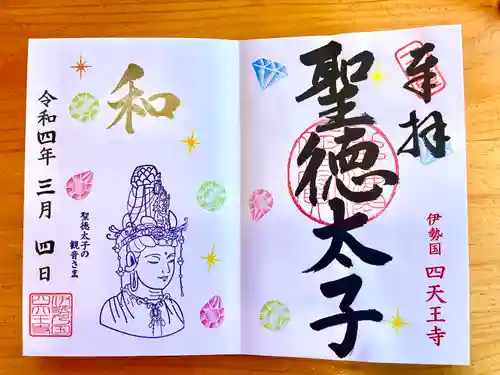 奉拝
聖徳太子
伊勢国 四天王寺
和
聖徳太子の
観音さま
令和四年 三月 四日